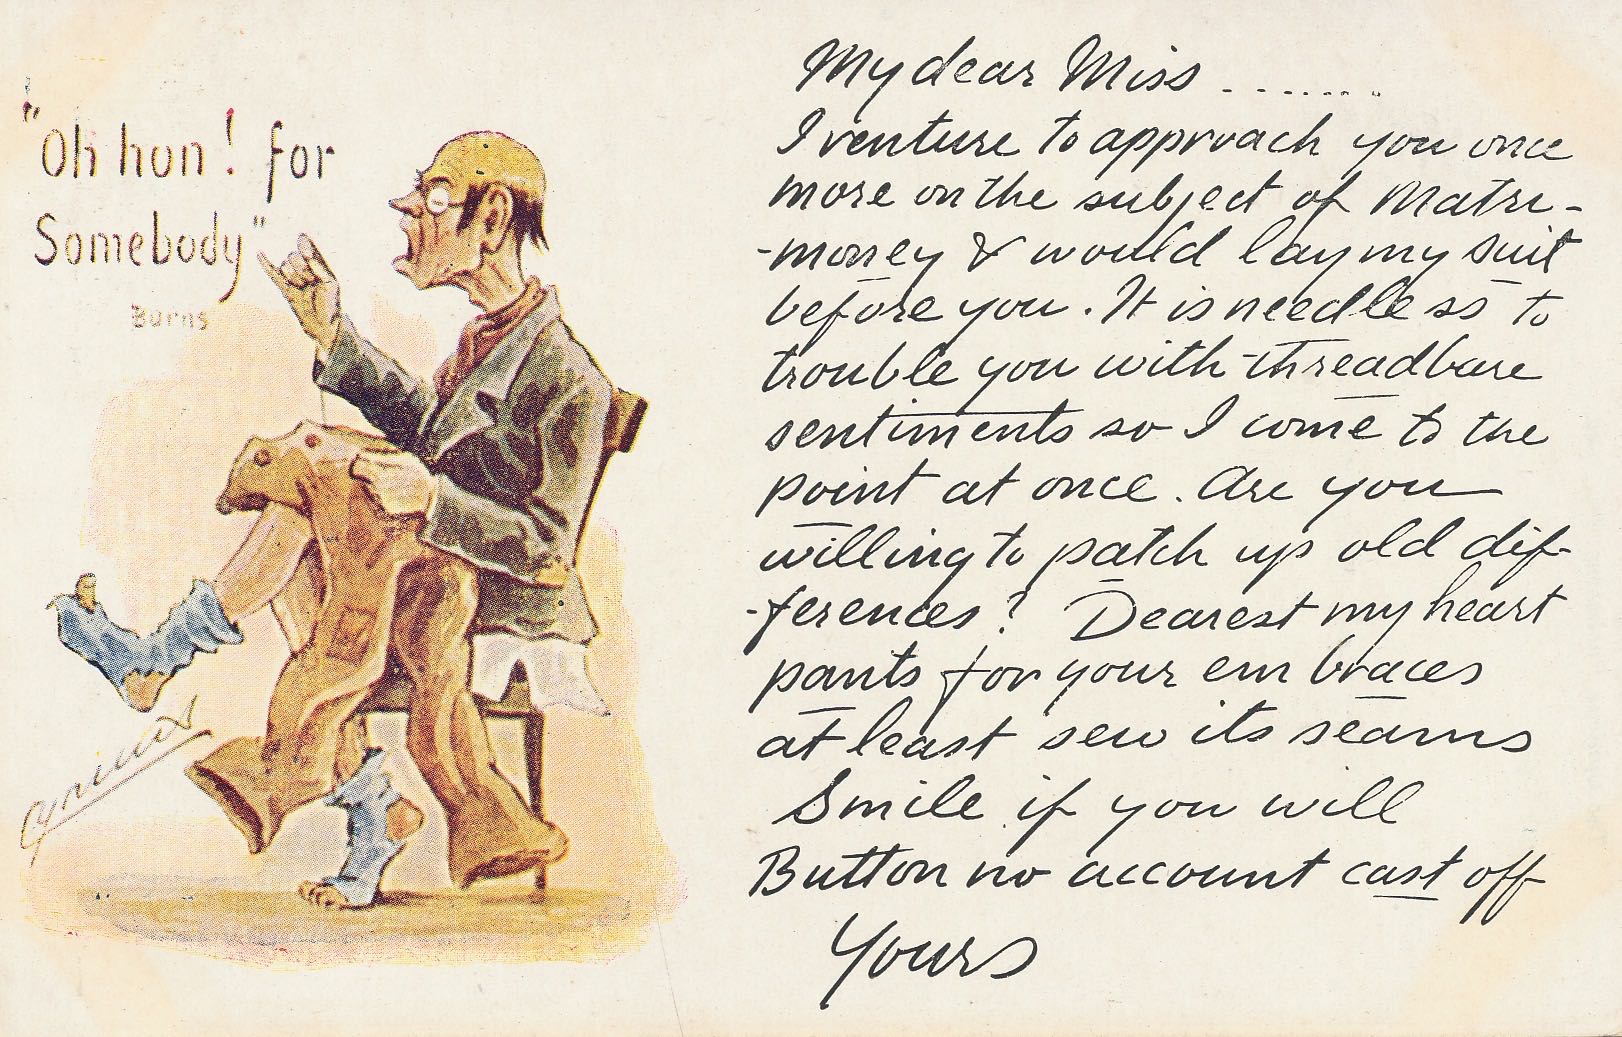 "Oh hon! for
Somebody"
Burns
Cynicus
My dear Miss ........
I venture to approach you once
more on the subject of Matri-
-money & would lay my suit
before you. It is needless to
trouble you with threadbare
sentiments so I come to the
point at once. Are you
willing to patch up old dif-
-ferences? Dearest my heart
pants for your embraces
at least sew its seams
Smile if you will
Button no account cast off
Yours